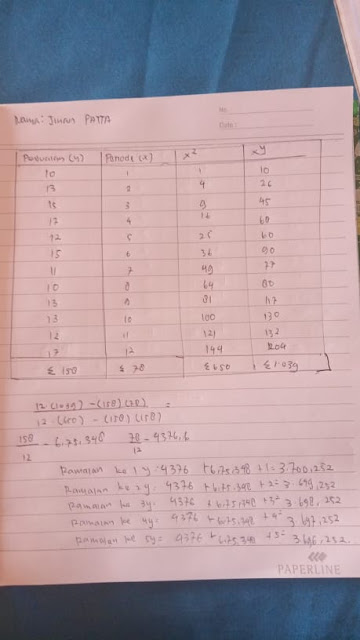 No.
Date :
Nama: JIHAN PATTA
Penjualan (y) Periode (x) x² xy
10 1 1 10
13 2 4 26
15 3 9 45
17 4 16 68
12 5 25 60
15 6 36 90
11 7 49 77
10 8 64 80
13 9 81 117
13 10 100 130
12 11 121 132
17 12 144 204
Σ 158 Σ 78 Σ 650 Σ 1.039
12 (1039) - (158) (78) =
12 · (650) - (158) (158)
158 - 6.75.348 78 - 4376,6
12 12
Ramalan ke 1 y = 4376 + 6.75.348 + 1 = 3.700,252
Ramalan ke 2 y = 4376 + 6.75.348 + 2 = 3.699,252
Ramalan ke 3y = 4376 + 6.75.348 + 3 = 3.698,252
Ramalan ke 4y = 4376 + 6.75.348 + 4 = 3.697,252
Ramalan ke 5y = 4376 + 6.75.348 + 5 = 3.696,252
PAPERLINE